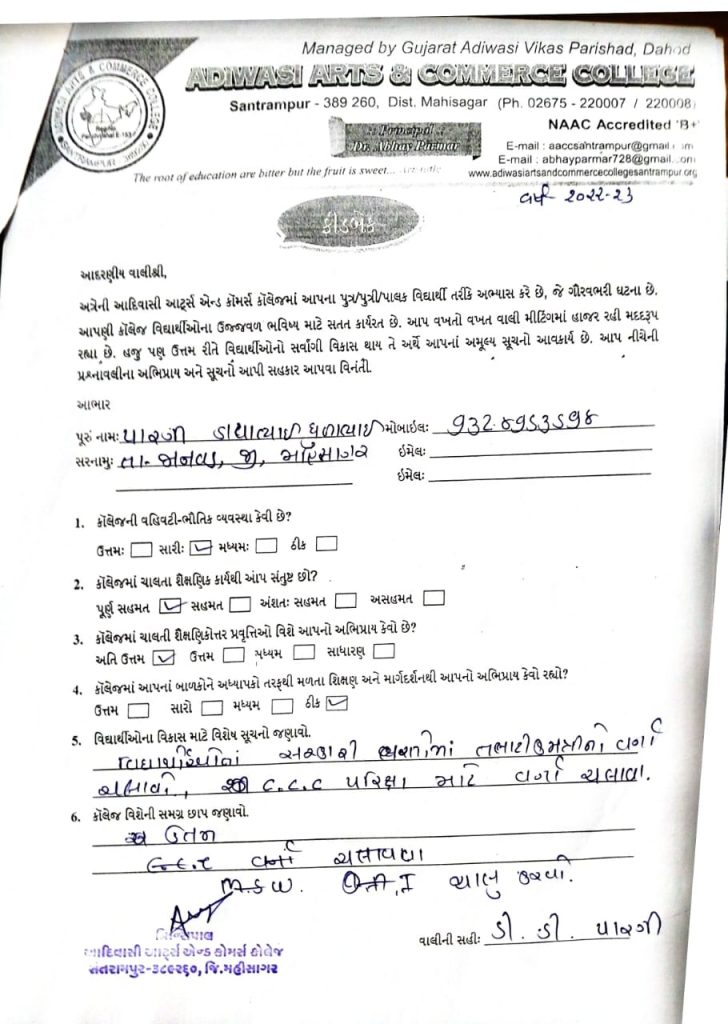 Managed by Gujarat Adiwasi Vikas Parishad, Dahod
ADIWASI ARTS & COMMERCE COLLEGE
Santrampur - 389 260, Dist. Mahisagar (Ph. 02675 - 220007 / 220008)
:: Principal ::
Dr. Abhay Parmar
NAAC Accredited 'B+'
E-mail : aaccsantrampur@gmail.com
E-mail : abhayparmar728@gmail.com
www.adiwasiartsandcommercecollegesantrampur.org
The root of education are bitter but the fruit is sweet...
વર્ષ ૨૦૨૨-૨૩
ફીડબેક
આદરણીય વાલીશ્રી,
અત્રેની આદિવાસી આર્ટ્સ એન્ડ કૉમર્સ કૉલેજમાં આપના પુત્ર/પુત્રી/પાલક વિદ્યાર્થી તરીકે અભ્યાસ કરે છે, જે ગૌરવભરી ઘટના છે.
આપણી કૉલેજ વિદ્યાર્થીઓના ઉજ્જવળ ભવિષ્ય માટે સતત કાર્યરત છે. આપ વખતો વખત વાલી મીટિંગમાં હાજર રહી મદદરૂપ
રહ્યા છે. હજુ પણ ઉત્તમ રીતે વિદ્યાર્થીઓનો સર્વાંગી વિકાસ થાય તે અર્થે આપનાં અમૂલ્ય સૂચનો આવકાર્ય છે. આપ નીચેની
પ્રશ્નાવલીના અભિપ્રાય અને સૂચનો આપી સહકાર આપવા વિનંતી.
આભાર
પૂરું નામઃ પારગી ડાયાભાઈ ધુળાભાઈ મોબાઈલઃ
સરનામુઃ તા- જી, મહિસાગર ઇમેલઃ
ઇમેલઃ
1. કૉલેજની વહિવટી-ભૌતિક વ્યવસ્થા કેવી છે?
ઉત્તમઃ સારીઃ મધ્યમઃ ઠીક
2. કૉલેજમાં ચાલતા શૈક્ષણિક કાર્યથી આપ સંતુષ્ટ છો?
પૂર્ણ સહમત સહમત અંશતઃ સહમત અસહમત
3. કૉલેજમાં ચાલતી શૈક્ષણિકોત્તર પ્રવૃત્તિઓ વિશે આપનો અભિપ્રાય કેવો છે?
અતિ ઉત્તમ ઉત્તમ મધ્યમ સાધારણ
4. કૉલેજમાં આપનાં બાળકોને અધ્યાપકો તરફથી મળતા શિક્ષણ અને માર્ગદર્શનથી આપનો અભિપ્રાય કેવો રહ્યો?
ઉત્તમ સારો મધ્યમ ઠીક
5. વિદ્યાર્થીઓના વિકાસ માટે વિશેષ સૂચનો જણાવો.
વિદ્યાર્થીઓનાં સરકારી ભરતીમાં તલાટી વર્ગો
ચલાવો, C.C.C પરિક્ષા માટે વર્ગો ચલાવા.
6. કૉલેજ વિશેની સમગ્ર છાપ જણાવો.
ઉત્તમ
વર્ગો ચલાવવા
M.S.W. ચાલુ કરવો.
પ્રિન્સિપાલ
આદિવાસી આર્ટ્સ એન્ડ કોમર્સ કોલેજ
સંતરામપુર-૩૮૯૨૬૦, જિ.મહીસાગર
વાલીની સહીઃ ડી. ડી. પારગી